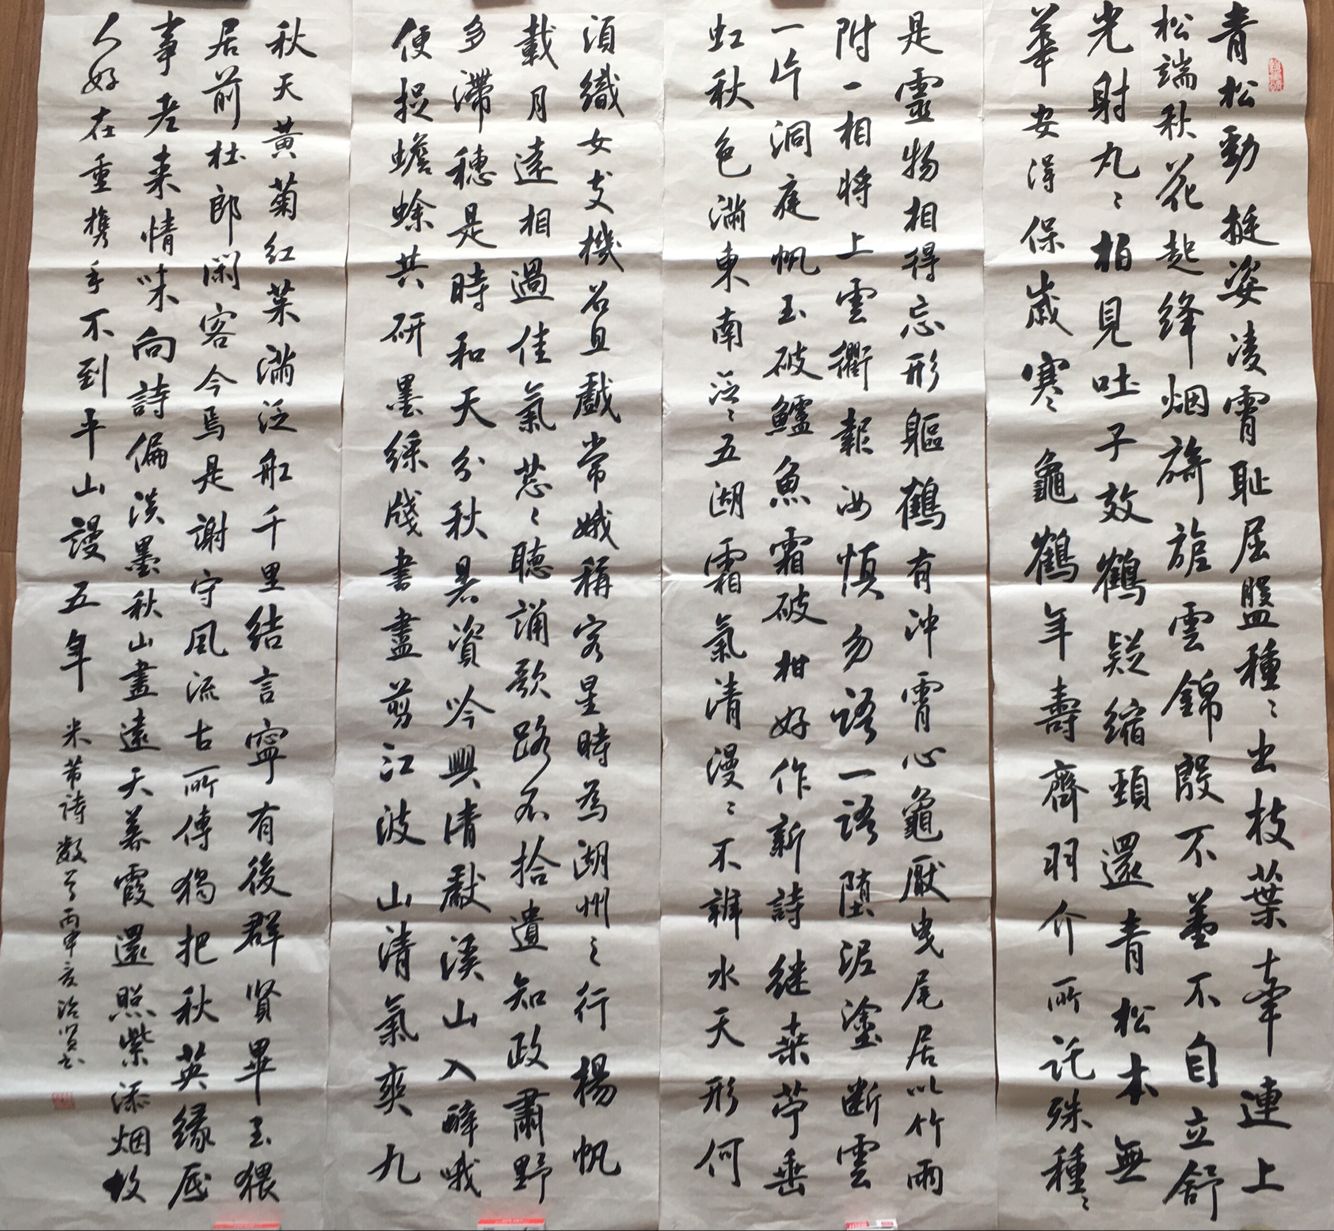 青松勁挺姿凌霄耻屈盤種〻出枝葉牽連上
松端秋花起絳烟旖旎雲錦殷不羞不自立舒
光射丸〻柏見吐子效鶴疑縮頸還青松本無
華安得保歲寒〻龜鶴年壽齊羽介所託殊種〻
是靈物相得忘形軀鶴有沖霄心龜厭曳尾居以竹兩
附一相將上雲衢報汝慎勿語一語墮泥塗斷雲
一片洞庭帆玉破鱸魚霜破柑好作新詩継桒苧垂
虹秋色滿東南泛〻五湖霜氣清漫〻不辨水天形何
須織女支機石且戲常娥稱客星時為湖州之行揚帆
載月遠相過佳氣蔥〻聽誦歌路不拾遺知政肅野
多滯穗是時和天分秋暑資吟興晴獻溪山入醉哦
便捉蟾蜍共研墨綵牋書盡剪江波山清氣爽九
秋天黃菊紅葉滿泛舡千里結言寧有後群賢畢至猥
居前杜郎閑客今焉是謝守風流古所傳獨把秋英緣底
事老來情味向詩偏淡墨秋山畫遠天暮霞還照紫添烟故
人好在重携手不到平山謾五年 米芾詩數首丙申